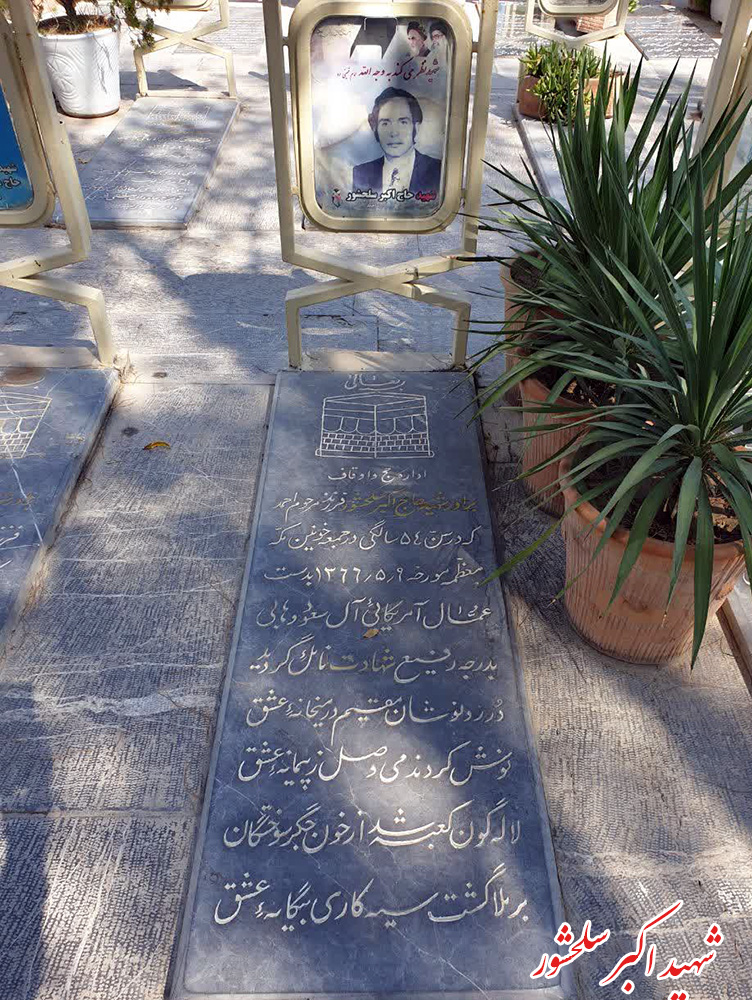 شهید نظر می کند به وجه الله
شهید حاج اکبر سلحشور
اداره حج و اوقاف
برادر شهید حاج اکبر سلحشور فرزند مرحوم احمد
که در سن ۵۴ سالگی در جمعه خونین مکه
معظمه مورخه ۱۳۶۶٫۵٫۹ بدست
عمال آمریکائی آل سعود وهابی
بدرجه رفیع شهادت نائل گردید
دُرد نوشان مقیم در میخانهٔ عشق
نوش کردند می وصل ز پیمانهٔ عشق
لاله گون کعبه شد از خون جگر سوختگان
بر ملا گشت سیه کاری بیگانهٔ عشق
شهید اکبر سلحشور